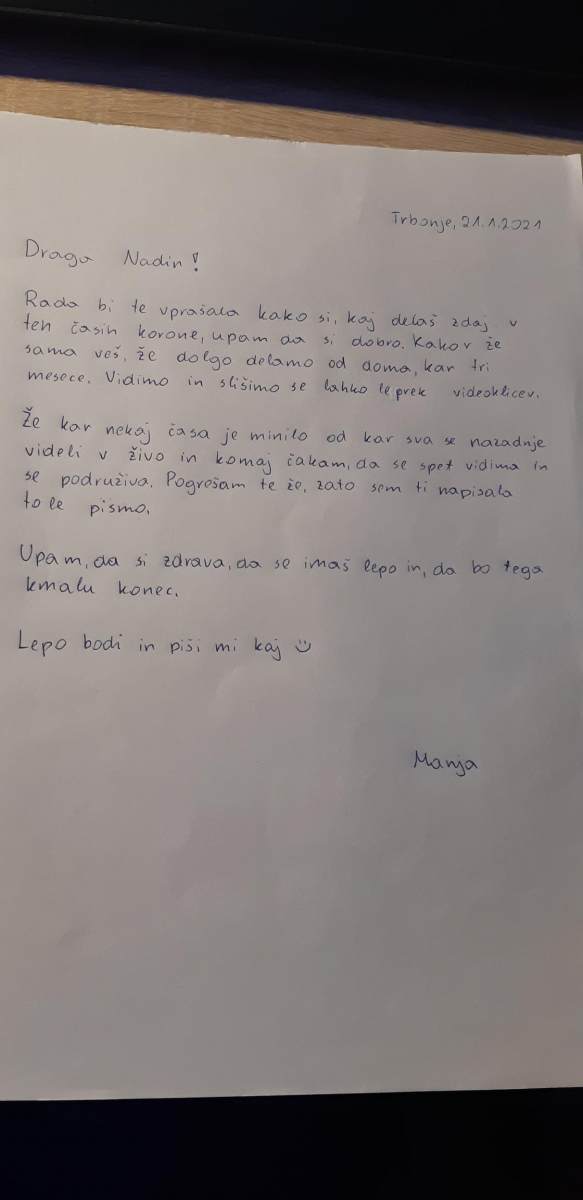 Trbonje, 21.1.2021
Draga Nadin!
Rada bi te vprašala kako si, kaj delaš zdaj v
teh časih korone, upam da si dobro. Kakor že
sama veš, že dolgo delamo od doma, kar tri
mesece. Vidimo in slišimo se lahko le prek videoklicev.
Že kar nekaj časa je minilo od kar sva se nazadnje
videli v živo in komaj čakam, da se spet vidima in
se podruživa. Pogrešam te že, zato sem ti napisala
tole pismo.
Upam, da si zdrava, da se imaš lepo in, da bo tega
kmalu konec.
Lepo bodi in piši mi kaj ☺
Manja